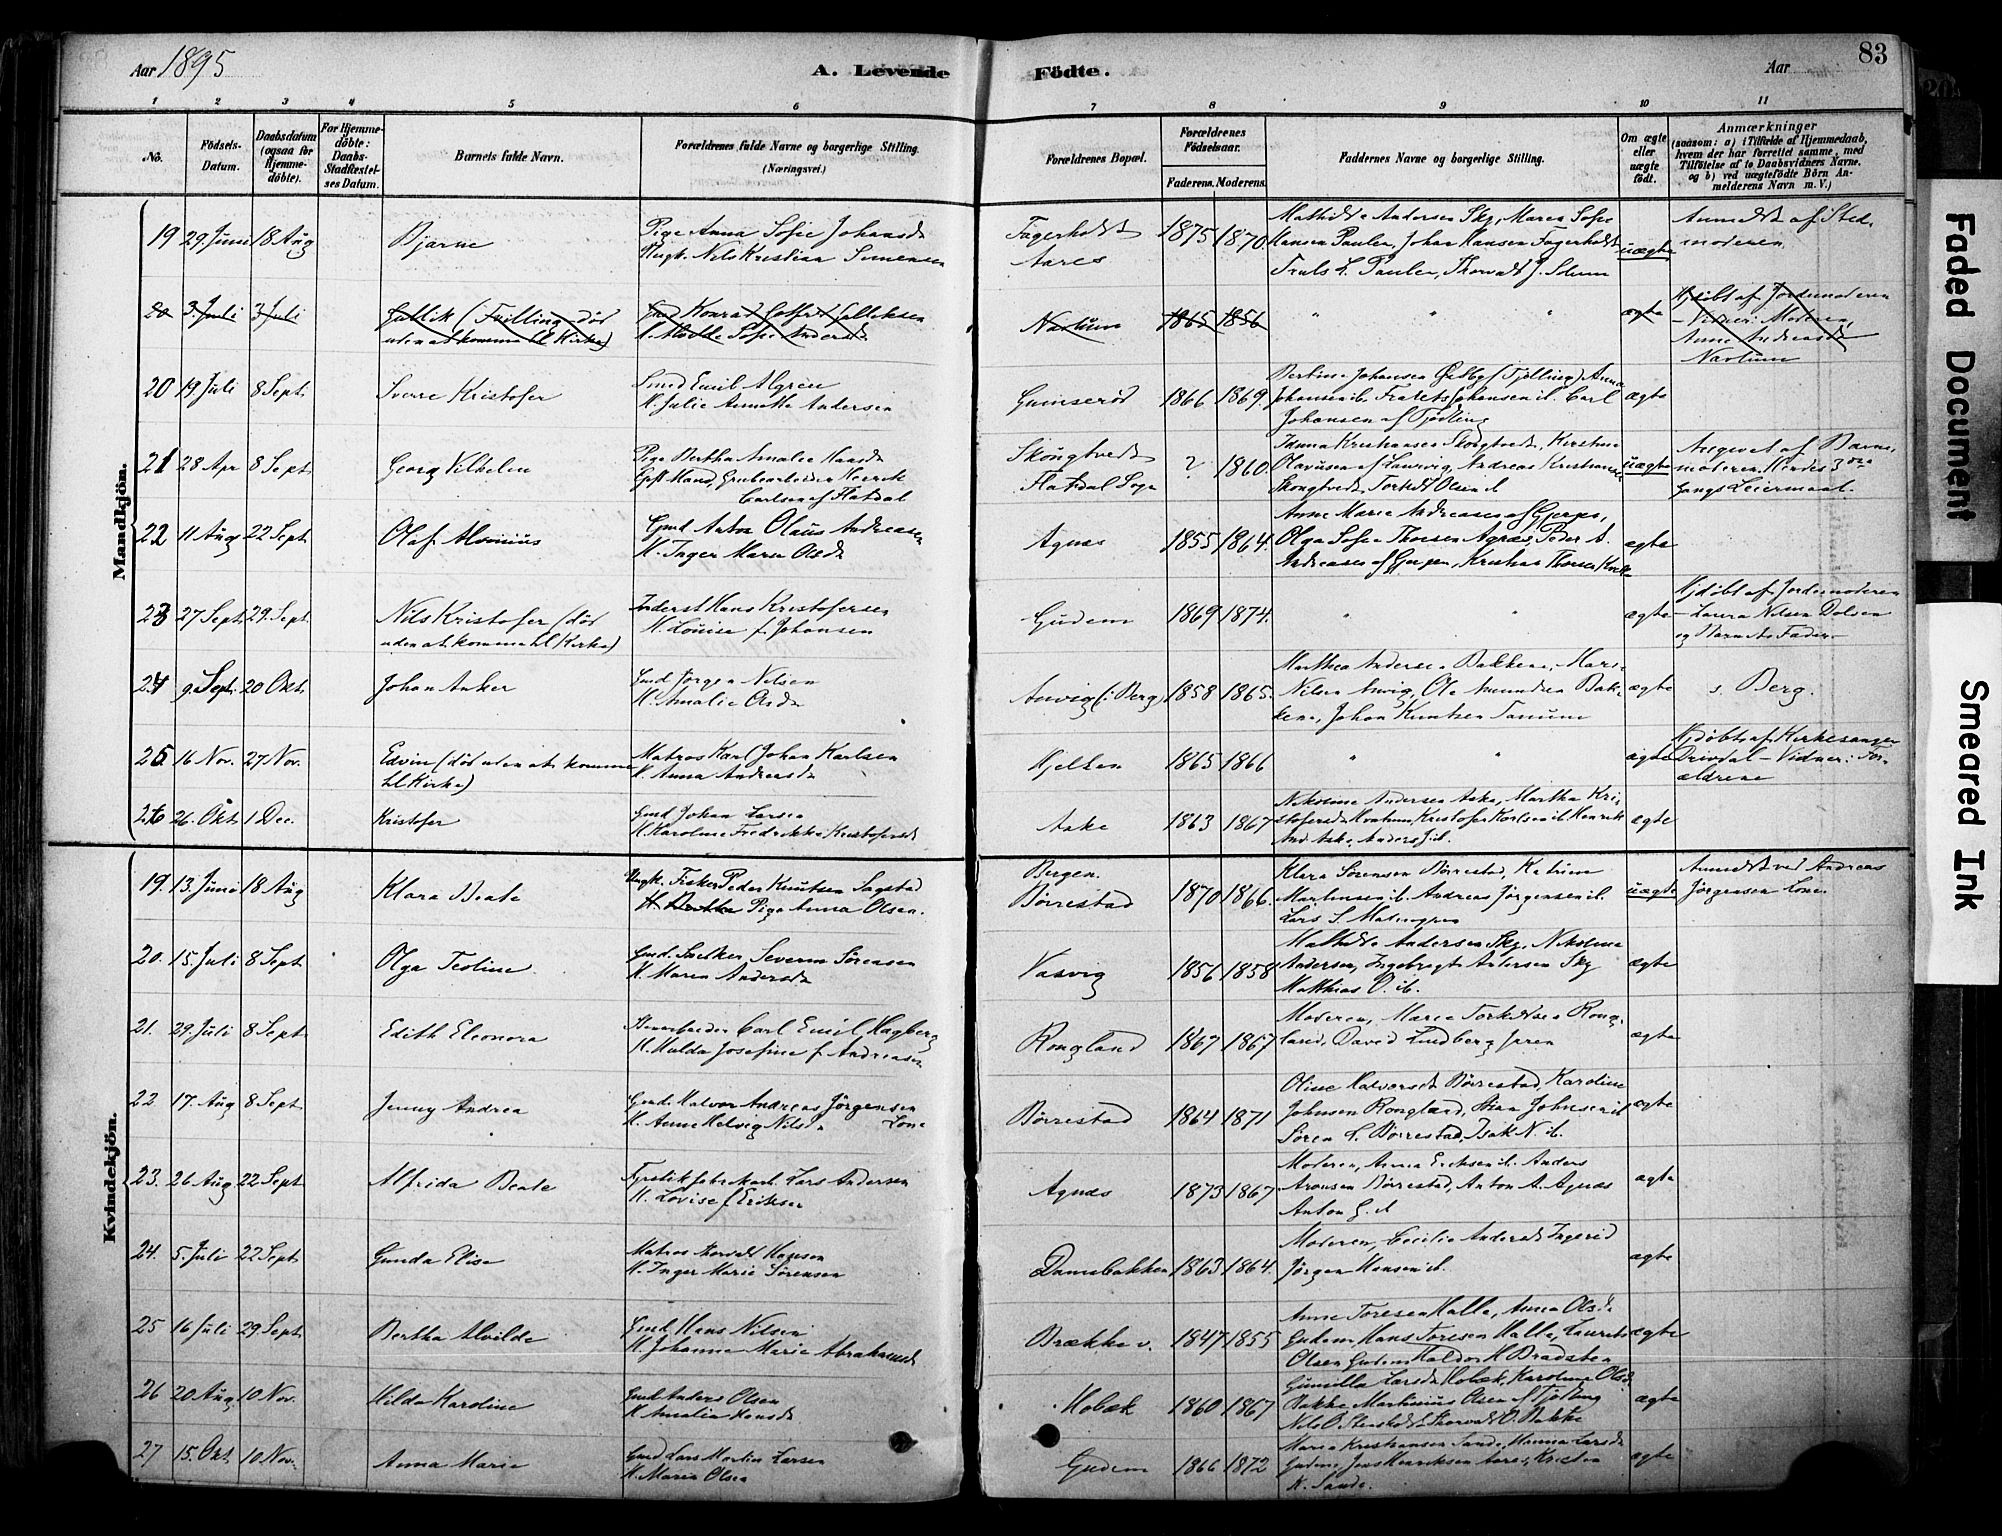 Aar 1895
A. Levende Födte.
Aar
83
1 2 3 4 5 6 7 8 9 10 11
No.
Födsels-Datum.
Daabsdatum (ogsaa for Hjemme-döbte).
For Hjemme-döbte: Daabs-Stadfæstel-ses Datum.
Barnets fulde Navn.
Forældrenes fulde Navne og borgerlige Stilling.
(Næringsvei.)
Forældrenes Bopæl.
Forældrenes Födselsaar.
Faderens. Moderens.
Faddernes Navne og borgerlige Stilling.
Om ægte eller uægte födt.
Anmærkninger
(saasom: a) i Tilfælde af Hjemmedaab,
hvem der har forrettet samme, med
Tilföielse af to Daabsvidners Navne.
og b) ved uægtefödte Börn An-
melderens Navn m. V.)
Mandkjön.
19 29 Juni 18 Aug Bjarne Pige Anna Sofie Johansd Fagerholdt 1875 1870. Mathilde Andersen Sky, Maren Sofie uægte Anmeldt af Sted
Ungk. Nils Kristian Simensen Aares Hansen Pauler, Johan Hansen Fagerholdt moderen
Truls L. Pauler, Thorvald J. Solum
20 3. Juli 3 Juli Gullik (Tvilling død Gmd Konrad Gulliksen Navlum 1865 1856 " " " ægte Hjdöbt af Jordemoderen
uden at komme til Kirke) H. Sofie Andersd Vidner: Moderen,
Anne Andreasd
Navlum
20 19 Juli 8 Sept. Sverre Kristofer Smed Emil Algren Gumseröd 1866 1869. Johansen (Tjölling) Anna ægte
H. Julie Annette Andersen Johansen ib. Johansen ib. Carl
Johansen af Tjölling
21 28 Apr 8 Sept. Georg Vilhelm Pige Bertha Amalie Hansd Skougtvedt ? 1860 Kristiansen Skougtvedt, uægte Angivet af Barne
Gift Mand, Grubearbeider Henrik Flatdal Sogn af Laurvig, Andreas Kristiansen moderen. Hendes 3die
Carlsen af Flatdal Skougtvedt, Torkild Olsen ib Gangs Leiermaal.
22 11 Aug 22 Sept. Olaf Gmd Anton Olaus Andreasen Agnæs 1855 1864. Anne Marie Andreasen af Gjerpen, ægte
H. Inger Maren Olsd Olga Sofie Thorsen Agnæs, Peder A.
Andreasen af Gjerpen, Kristian Thorsen
23 27 Sept. 29. Sept. Nils Kristofer (död Inderst Hans Kristofersen Gudem 1869 1874. " " ægte Hjdöbt af Jordemoderen
uden at komme til Kirke) H. Louise f. Johansen Laura Nilsen Dolven
og Barnets Fader
24 9. Sept. 20 Okt. Johan Anker Gmd Jörgen Nilsen Anvig (i Berg) 1858 1865. Marthea Andersen Bakkene, ægte s. Berg.
H. Amalie Olsd Nilsen Anvig, Ole Amundsen Bak-
kene, Johan Knutsen Tanum
25 16 Nov. 27 Nov. Edvin (död uden at komme Matros Karl Johan Karlsen Hjelten 1865 1866 " " ægte Hjdöbt af Kirkesanger
til Kirke) H. Anna Andreasd Vidner: For
ældrene
26 26. Okt. 1 Dec. Kristofer Gmd Johan Larsen Aske 1863 1867 Nikoline Andersen Aske, Martha Kri- ægte
H. Karoline Fredrikke Kristofersd stofersd Kristofer Karlsen ib Henrik
Kvindekjön.
19. 13. Juni 18 Aug Klara Beate Ungk. Fisker Peder Knutsen Sagstad Bergen. 1870 1866. Klara Sörensen Börrestad, Katrine uægte Anmeldt ved Andreas
Pige Anna Olsen. Börrestad Martinsen ib. Andreas Jörgensen ib. Jörgensen Lone.
Lars S.
20. 15. Juli 8 Sept Olga Teoline Gmd. Snekker Severin Sörensen Vasvig 1856 1858 Mathilde Andersen Sky, Nikoline ægte
H. Maren Andersd Andersen, Ingebregt Andersen Sky
Matthias O. ib.
21. 29. Juli 8 Sept. Edith Eleonora Carl Emil Hagberg Rougland 1867 1867 Moderen, Maren Torkildsen Roug- ægte
H. Hulda Josefine f. Andreasen land, David Lindberg
22 17. Aug 8 Sept. Jenny Andrea Gmd. Halvor Andreas Jörgensen Börrestad 1864 1871 Oline Halvorsd Börrestad, Karoline ægte
H. Anne Helvig Nilsd Lone Johnsen Rougland, Johnsen ib
Sören L. Börrestad, Isak N. ib.
23. 26 Aug 22 Sept. Alfrida Beate Lars Andersen Agnæs 1873 1867 Moderen, Anna Eriksen ib. Anders ægte
H. Lovise f. Eriksen Aronsen Börrestad, Anton A. Agnæs
Anton G. ib
24. 5. Juli 22 Sept. Gunda Elise Matros Thorvald Hansen Damsbakken 1863 1864. Moderen, Cecilie Andersd Ingerid ægte
H. Inger Marie Sörensen Jörgen Hansen ib.
25 16 Juli 29. Sept. Bertha Alvilde Gmd Hans Nilsen Brække v. 1847 1855 Anne Toresen Halle, Anna Olsd ægte
H Johanne Marie Abrahamsd Gudem, Hans Toresen Halle, Laurits
Olsen Gudem Haldor H Bradsten
26 20. Aug 10 Nov. Hilda Karoline Gmd Anders Olsen Hobæk 1860 1867 Gunilla Larsd Hobæk, Karoline Olsd ægte
H Amalia Hansd Bakke Martinius Olsen af Tjölling
Nils O. Thorvald O. Bakke
27 15. Okt. 10 Nov. Anna Marie Gmd Lars Martin Larsen Gudem 1866 1872 Maren Kristiansen Sande, Hanna Larsd ægte
H. Maren Olsen Gudem, Jens Henriksen Aares, Kristen
K. Sande.
Faded Document
Smeared Ink